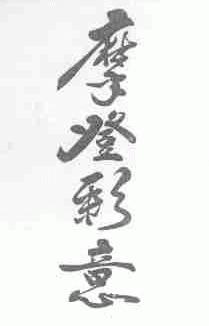 摩登彩意